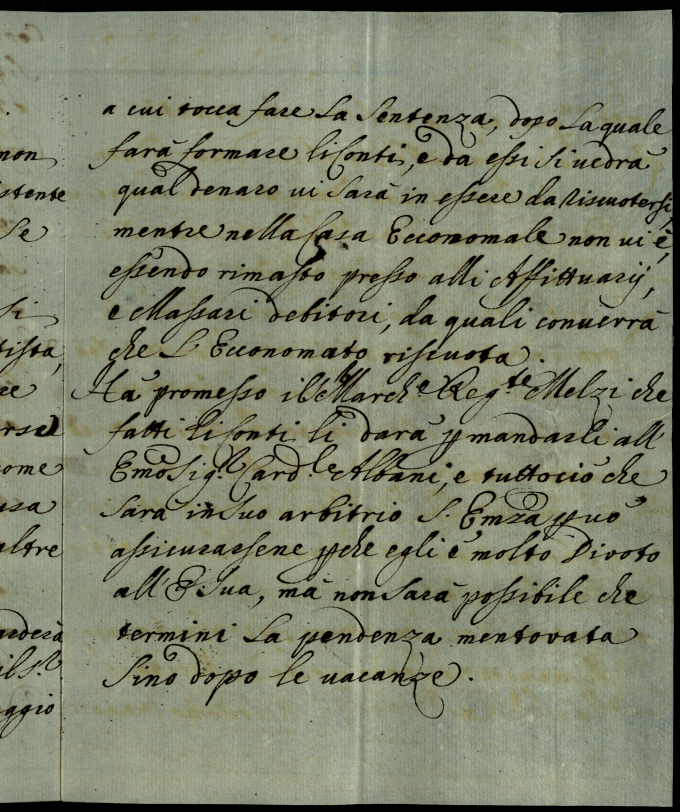 non
istente
Se
Si
tista,
re
ome
altre
arderà
il S.r
ggio
a cui tocca fare La Sentenza, dopo La quale
farà formare li Conti, e da essi si vedrà
qual denaro vi sarà in essere da riscuotersi,
mentre nella Casa Economale non vi è,
essendo rimasto presso alli Affittuarij,
e Massari debitori, da quali converrà
che L'Economato riscuota.
Hà promesso il March.e Reg.te Melzi che
fatti li Conti li darà p mandarli all'
Emo Sig.r Card.le Albani, e tuttociò che
sarà in suo arbitrio S. Emza può
assicurarsene pche egli è molto Divoto
all' E Sua, mà non sarà possibile che
termini La pendenza mentovata
sino dopo le vacanze.